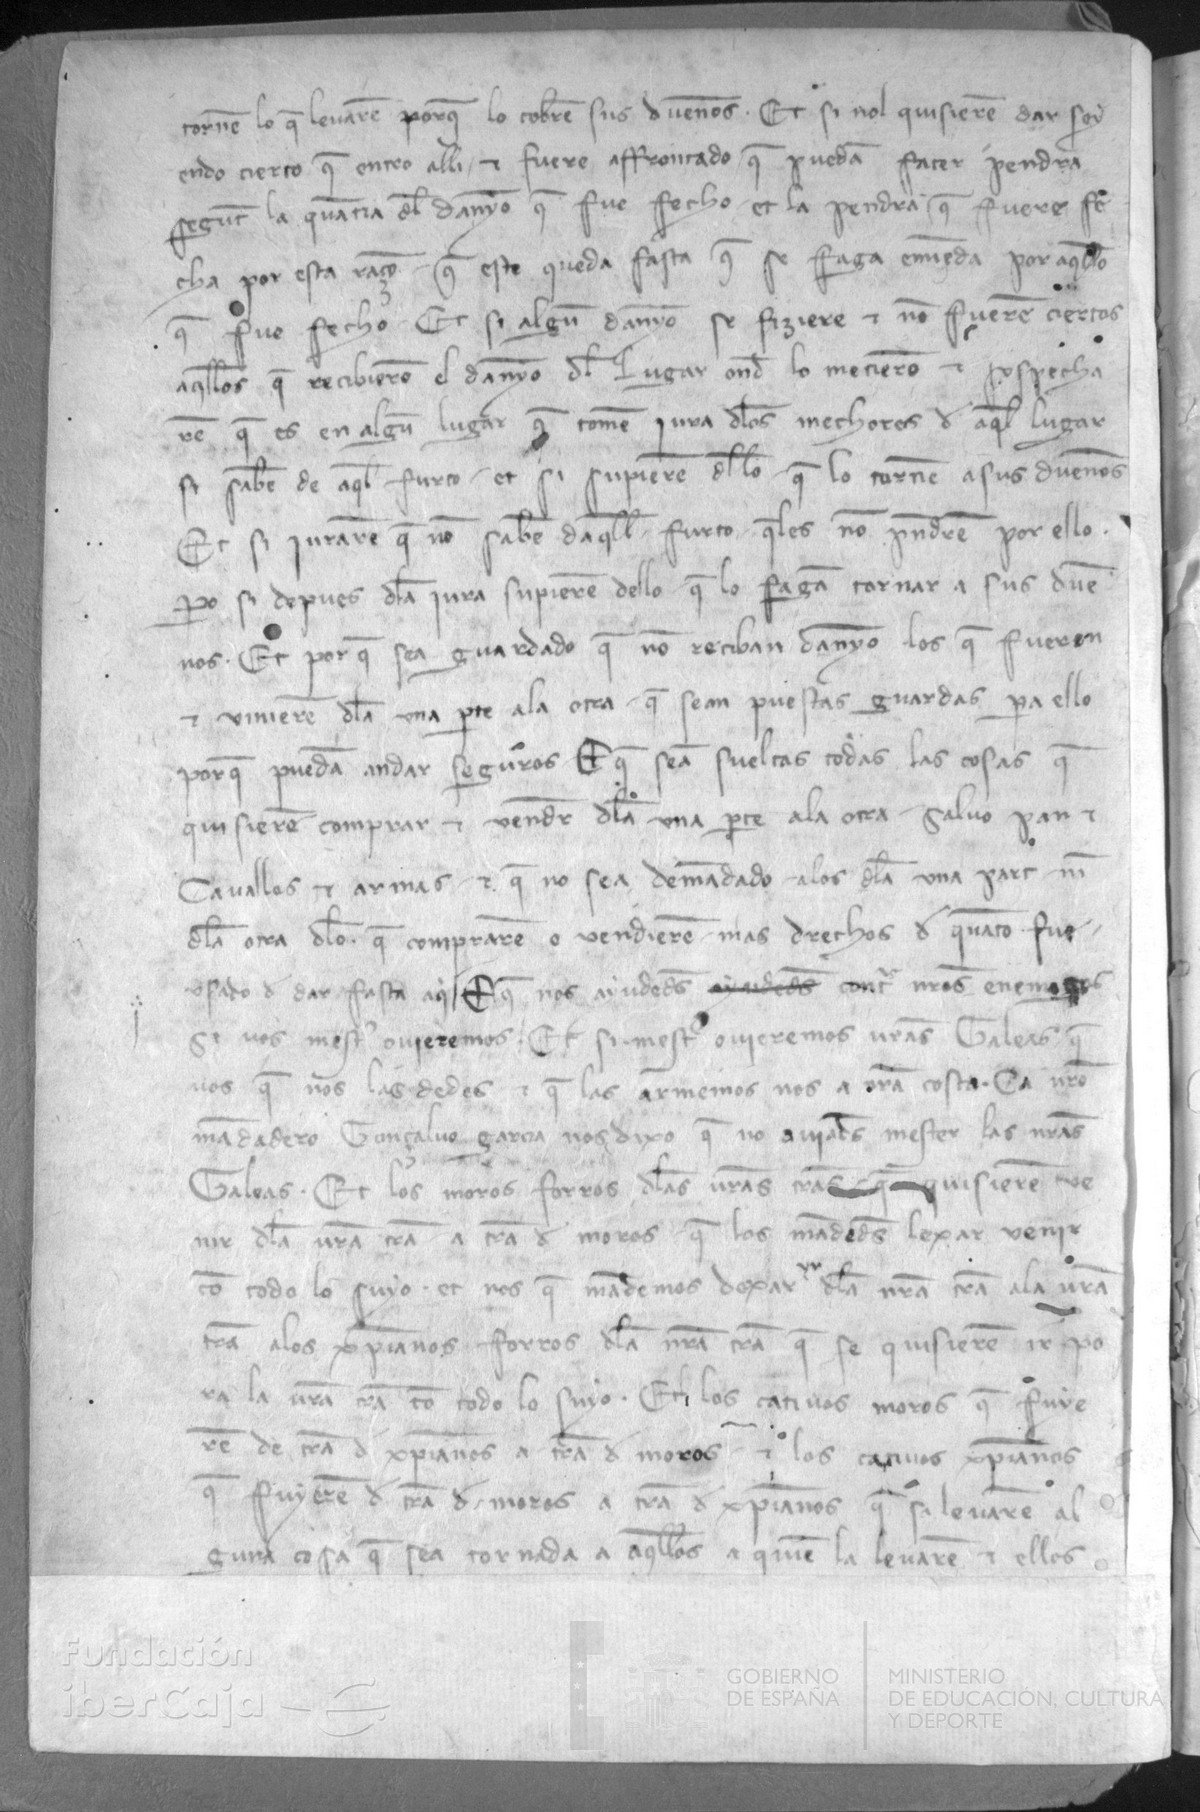 tornẽ lo q̃ levarẽ porq̃ lo cobrẽ sus dueños. Et si nol quisierẽ dar sey
endo cierto q̃ entro alli ⁊ fuere affrontado q̃ puedã facer pendra
segũt la quãtia dl̃ danyo q̃ fue fecho et la pendra q̃ fuere fe
cha por esta raçõ q̃ este queda fasta q̃ se faga emiẽda por aq̃llo
q̃ fue fecho Et si algũ danyo se fiziere ⁊ nõ fuerẽ ciertos
aq̃llos q̃ recibierõ el danyo dl̃ Lugar ond̃ lo metierõ ⁊ sospecha
rẽ q̃ es en algũ lugar q̃ tomẽ iura dl̃os mechores d̃ aq̃l lugar
si sabẽ de aq̃l furto et si supierẽ dl̃lo q̃ lo tornẽ a sus dueños
Et si iurarẽ q̃ nõ sabẽ daq̃ll furto q̃les nõ pñdrẽ por ello.
p̱o si depues dl̃a iura supierẽ dello q̃ lo fagã tornar a sus due
nos. Et por q̃ sea guardado q̃ nõ reciban danyo los q̃ fueren
⁊ vinierẽ dl̃a una p̱te ala otra q̃ sean puestas guardas p̱a ello
porq̃ puedã andar seguros Et q̃ seã sueltas todas las cosas q̃
quisierẽ comprar ⁊ vendr̃ dl̃a una p̱te ala otra salvo pan ⁊
Cavallos ⁊ armas ⁊ q̃ no sea demãdado alos dl̃a una part nĩ
dl̃a otra dl̃o q̃ comprarẽ o vendierẽ mas drechos d̃ quãto fue
usado d̃ dar fasta aq̃i Et q̃ nos ayudeds̃ ayudeds̃ contr̃ nr̃os enemigos
Si vos mest̃ ovieremos. Et si mest̃ ovieremos vr̃as Galeas q̃
vos q̃ nos las dedes ⁊ q̃ las armemos nos a nr̃a costa. Ca vr̃o
mãdadero Gonçalvo garcia nos dixo q̃ no aviad̃s mester las nr̃as
Galeas. Et los moros forros dl̃as vr̃as tr̃as q̃ quisierẽ ve
nir dl̃a vr̃a tr̃a a tr̃a d̃ moros q̃ los mãdeds̃ lexar venir
cõ todo lo suyo. et nos q̃ mãdemos dexar yr dl̃a nr̃a tr̃a ala vr̃a
tr̃a alos xp̃ianos forros dl̃a nr̃a tr̃a q̃ se quisierẽ ir po
ra la vr̃a tr̃a cõ todo lo suyo. Et los cativos moros q̃ fuye
rẽ de tr̃a d̃ xp̃ianos a tr̃a d̃ moros ⁊ los cativos xp̃ianos
q̃ fuyerẽ d̃ tr̃a d̃ moros a tr̃a d̃ xp̃ianos q̃ si levarẽ al
guna cosa q̃ sea tornada a aq̃llos a quiẽ la levarẽ ⁊ ellos
Fundación
iberCaja
GOBIERNO
DE ESPAÑA
MINISTERIO
DE EDUCACIÓN, CULTURA
Y DEPORTE